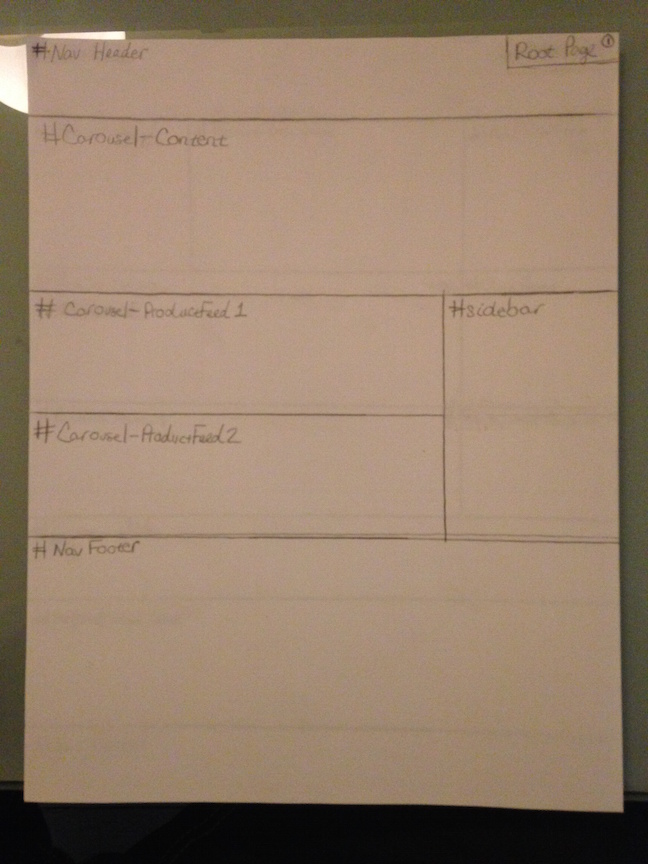 #Nav Header
Root Page 1
#Carousel-Content
# Carousel-ProductFeed 1
#sidebar
#Carousel-ProductFeed 2
# Nav Footer